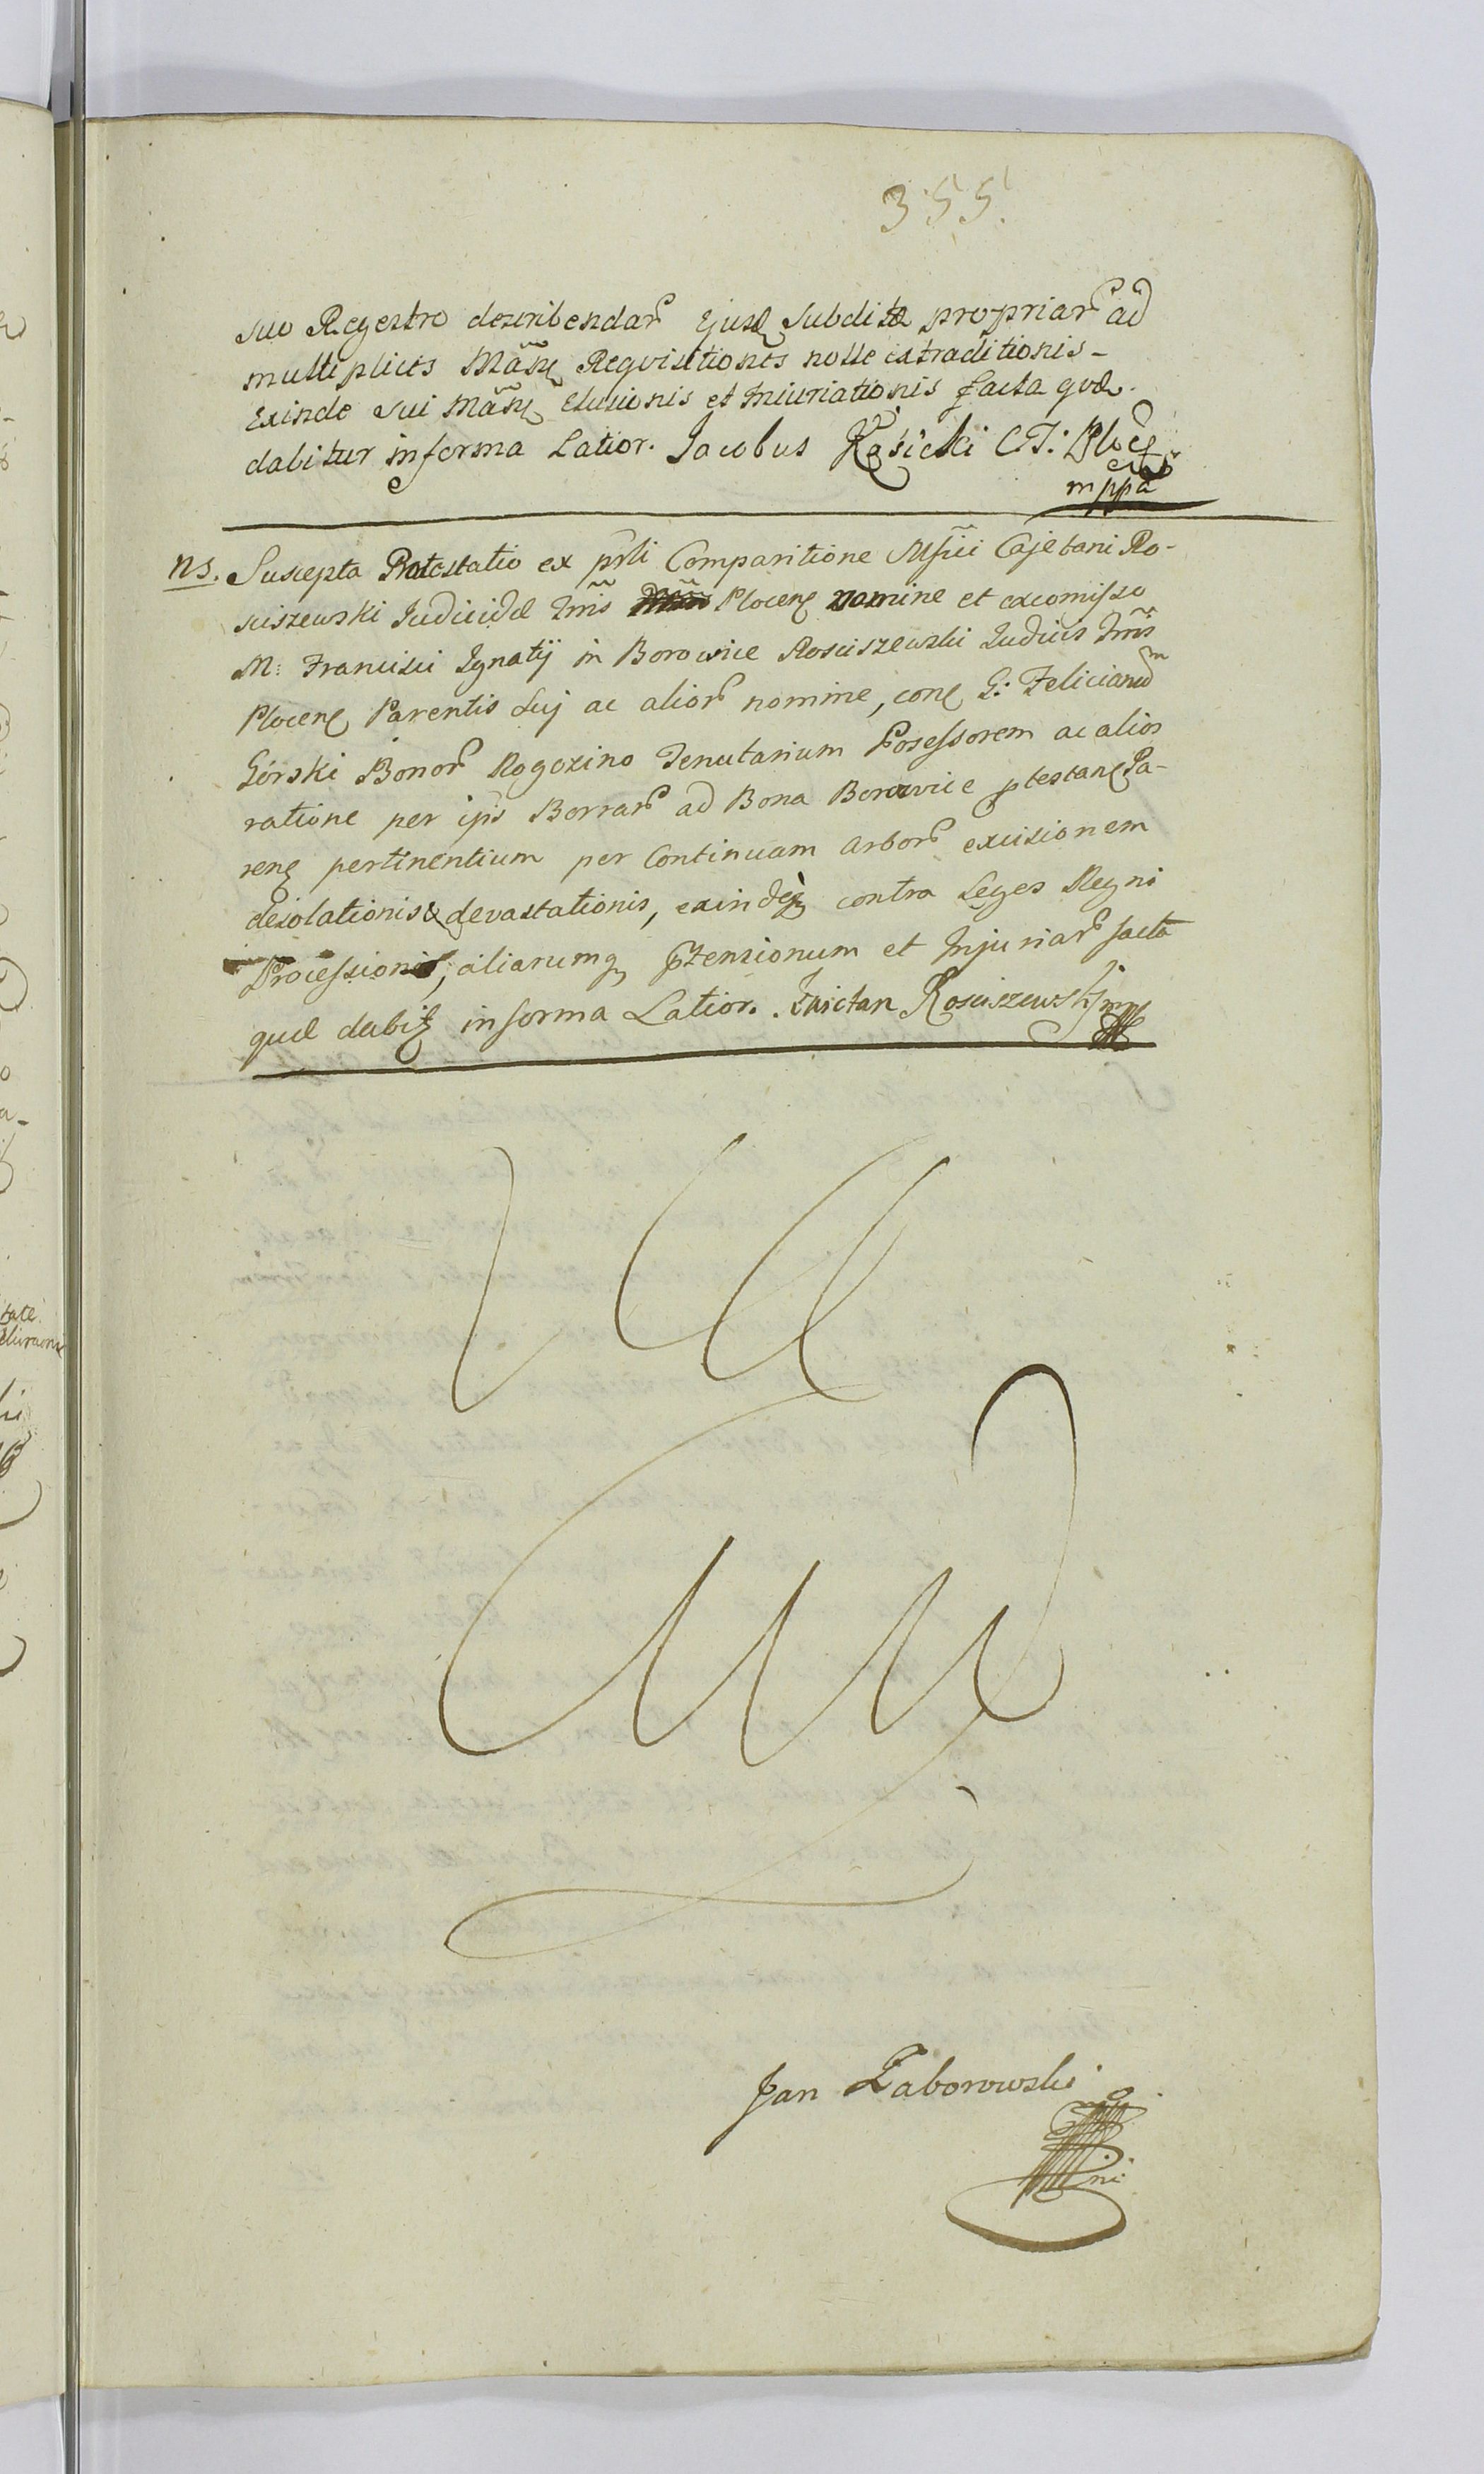 355.
suo Regestro describendar Ejusd Subditæ propriar ad
multiplices Mãñ Reqvisitiones nolle extraditionis-
Exinde sui Mãñ Elusionis et Iniuriationis facta qvæ.
dabitur in forma Latior. Jacobus Kosicki C.T: Płoc
mppa
ns. Suscepta Protestatio ex prsli Comparitione Mfici Cajetani Ro-
sciszewski Judicidæ Trris Plocen nomine et excomisso
M: Francisci Ignatij in Borowice Rosciszewski Judicis Trris
Plocen Parentis Sui ac alior nomine, con G: Felicianum
Górski Bonor Rogozino Tenutarium Possessorem ac alios
ratione per ips Borrar ad Bona Borowice ptestan Pa-
ren pertinentium per Continuam Arbor excisionem
desolationis & devastationis, exindeq contra Leges Regni
Processionis, aliarumq ptensionum et Injuriar facta
quæ dabit in forma Latior. Kaietan Rosciszewski mp
Jan Zaborowski